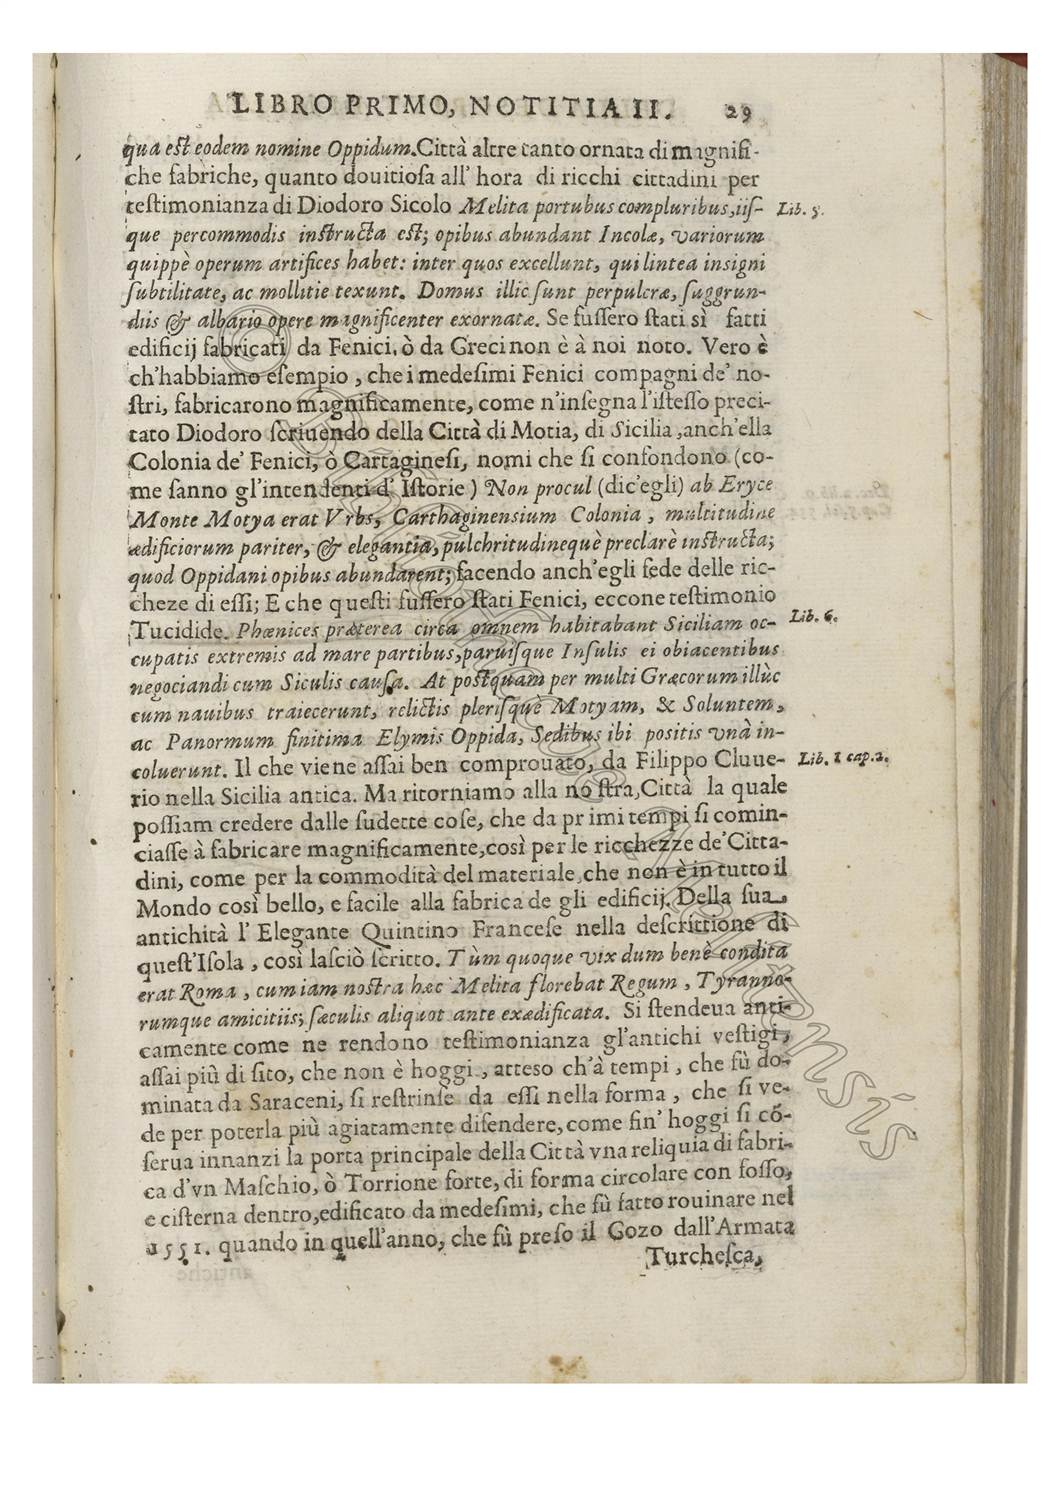 LIBRO PRIMO, NOTITIA II. 29
qua est eodem nomine Oppidum. Città altre tanto ornata di magnifi-
che fabriche, quanto douitiosa all' hora di ricchi cittadini per
testimonianza di Diodoro Sicolo Melita portubus compluribus, iis- Lib. 5.
que percommodis instructa est; opibus abundant Incolæ, variorum
quippè operum artifices habet: inter quos excellunt, qui lintea insigni
subtilitate, ac mollitie texunt. Domus illic sunt perpulcræ, suggrun-
diis & albario opere magnificenter exornatæ. Se fussero stati sì fatti
edificij fabricati da Fenici, ò da Greci non è à noi noto. Vero è
ch'habbiamo esempio, che i medesimi Fenici compagni de' no-
stri, fabricarono magnificamente, come n'insegna l'istesso preci-
tato Diodoro scriuendo della Città di Motia, di Sicilia, anch'ella
Colonia de' Fenici, ò Cartaginesi, nomi che si confondono (co-
me sanno gl'intendenti d' Istorie) Non procul (dic'egli) ab Eryce
Monte Motya erat Vrbs, Carthaginensium Colonia, multitudine
ædificiorum pariter, & elegantia, pulchritudinequè preclarè instructa;
quod Oppidani opibus abundarent; facendo anch'egli fede delle ric-
cheze di essi; E che questi fussero stati Fenici, eccone testimonio
Tucidide. Phœnices præterea circa omnem habitabant Siciliam oc- Lib. 6.
cupatis extremis ad mare partibus, paruisque Insulis ei obiacentibus
negociandi cum Siculis causa. At postquam per multi Græcorum illùc
cum nauibus traiecerunt, relictis plerisquè Motyam, & Soluntem,
ac Panormum finitima Elymis Oppida, Sedibus ibi positis vnà in-
coluerunt. Il che viene assai ben comprouato, da Filippo Cluue- Lib. 1 cap. 2.
rio nella Sicilia antica. Ma ritorniamo alla nostra, Città la quale
possiam credere dalle sudette cose, che da primi tempi si comin-
ciasse à fabricare magnificamente, così per le ricchezze de' Citta-
dini, come per la commodità del materiale, che non è in tutto il
Mondo così bello, e facile alla fabrica de gli edificij. Della sua
antichità l' Elegante Quintino Francese nella descrittione di
quest'Isola, così lasciò scritto. Tùm quoque vix dum benè condita
erat Roma, cum iam nostra hæc Melita florebat Regum, Tyranno-
rumque amicitiis; sæculis aliquot ante exædificata. Si stendeua anti-
camente come ne rendono testimonianza gl'antichi vestigi,
assai più di sito, che non è hoggi, atteso ch'à tempi, che fù do-
minata da Saraceni, si restrinse da essi nella forma, che si ve-
de per poterla più agiatamente difendere, come fin' hoggi si cõ-
serua innanzi la porta principale della Città vna reliquia di fabri-
ca d'vn Maschio, ò Torrione forte, di forma circolare con fosso,
e cisterna dentro, edificato da medesimi, che fù fatto rouinare nel
1551. quando in quell'anno, che fù preso il Gozo dall'Armata
Turchesca,